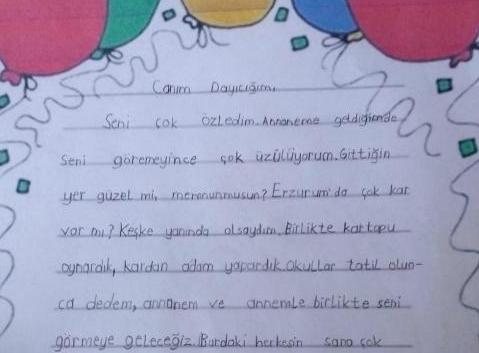 Canım Dayıcığım,
Seni çok özledim. Annaneme geldiğimde
seni göremeyince çok üzülüyorum. Gittiğin
yer güzel mi, memnunmusun? Erzurum'da çok kar
var mı? Keşke yanında olsaydım. Birlikte kartopu
oynardık, kardan adam yapardık. Okullar tatil olun-
ca dedem, annanem ve annemle birlikte seni
görmeye geleceğiz. Burdaki herkesin sana çok